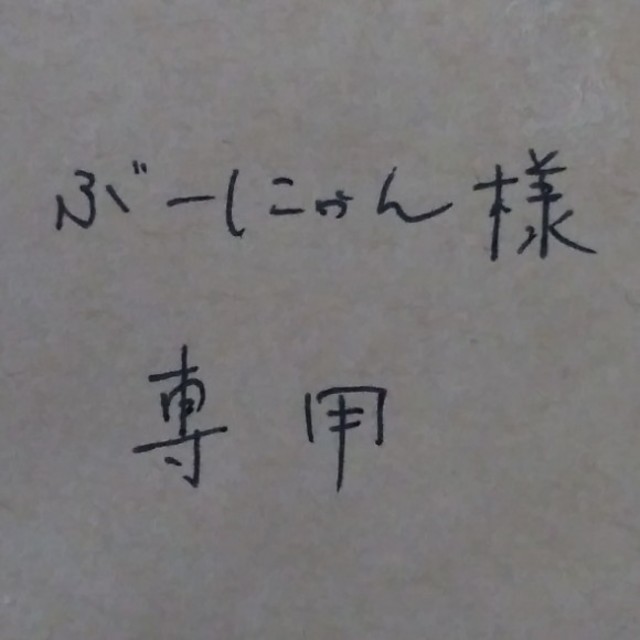 ぶーにゃん様
専用